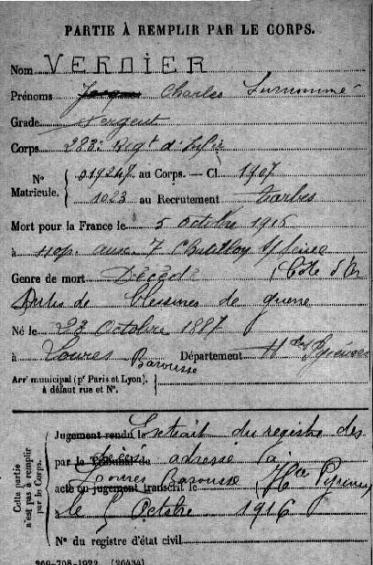 PARTIE À REMPLIR PAR LE CORPS.
Nom VERDIER
Prénoms Charles Surnommé
Grade Sergent
Corps 283e Rgt d'Infie
No Matricule. 019247 au Corps. — Cl. 1907
1023 au Recrutement Tarbes
Mort pour la France le 5 Octobre 1915
à Hop. aux. 7 Chatillon s/ Seine
Genre de mort Décédé (Côte d'Or
Suites de blessures de guerre
Né le 28 Octobre 1887
à Loures Barousse Département Htes Pyrénées
Arrt municipal (pr Paris et Lyon),
à défaut rue et No.
Cette partie n'est pas à remplir par le Corps.
Jugement rendu le Extrait du registre des
par le Tribunal de décès adressé à
acte ou jugement transcrit le Loures Barousse (Htes Pyrénées
le 5 Octobre 1916
No du registre d'état civil
(26434)